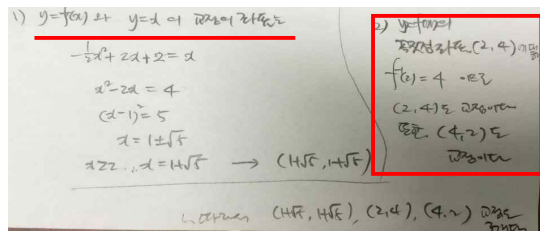 1) y=f(x) 와 y=x 의 교점의 좌표는
-1/2x²+2x+2=x
x²-2x=4
(x-1)²=5
x=1±√5
x≥2 ∴ x=1+√5 → (1+√5, 1+√5)
2) y=f(x)의
꼭짓점 좌표 (2,4)
f(2)=4 므로
(2,4)도 교점이다
또한 (4,2)도
교점이다
(1+√5, 1+√5), (2,4), (4,2) 교점